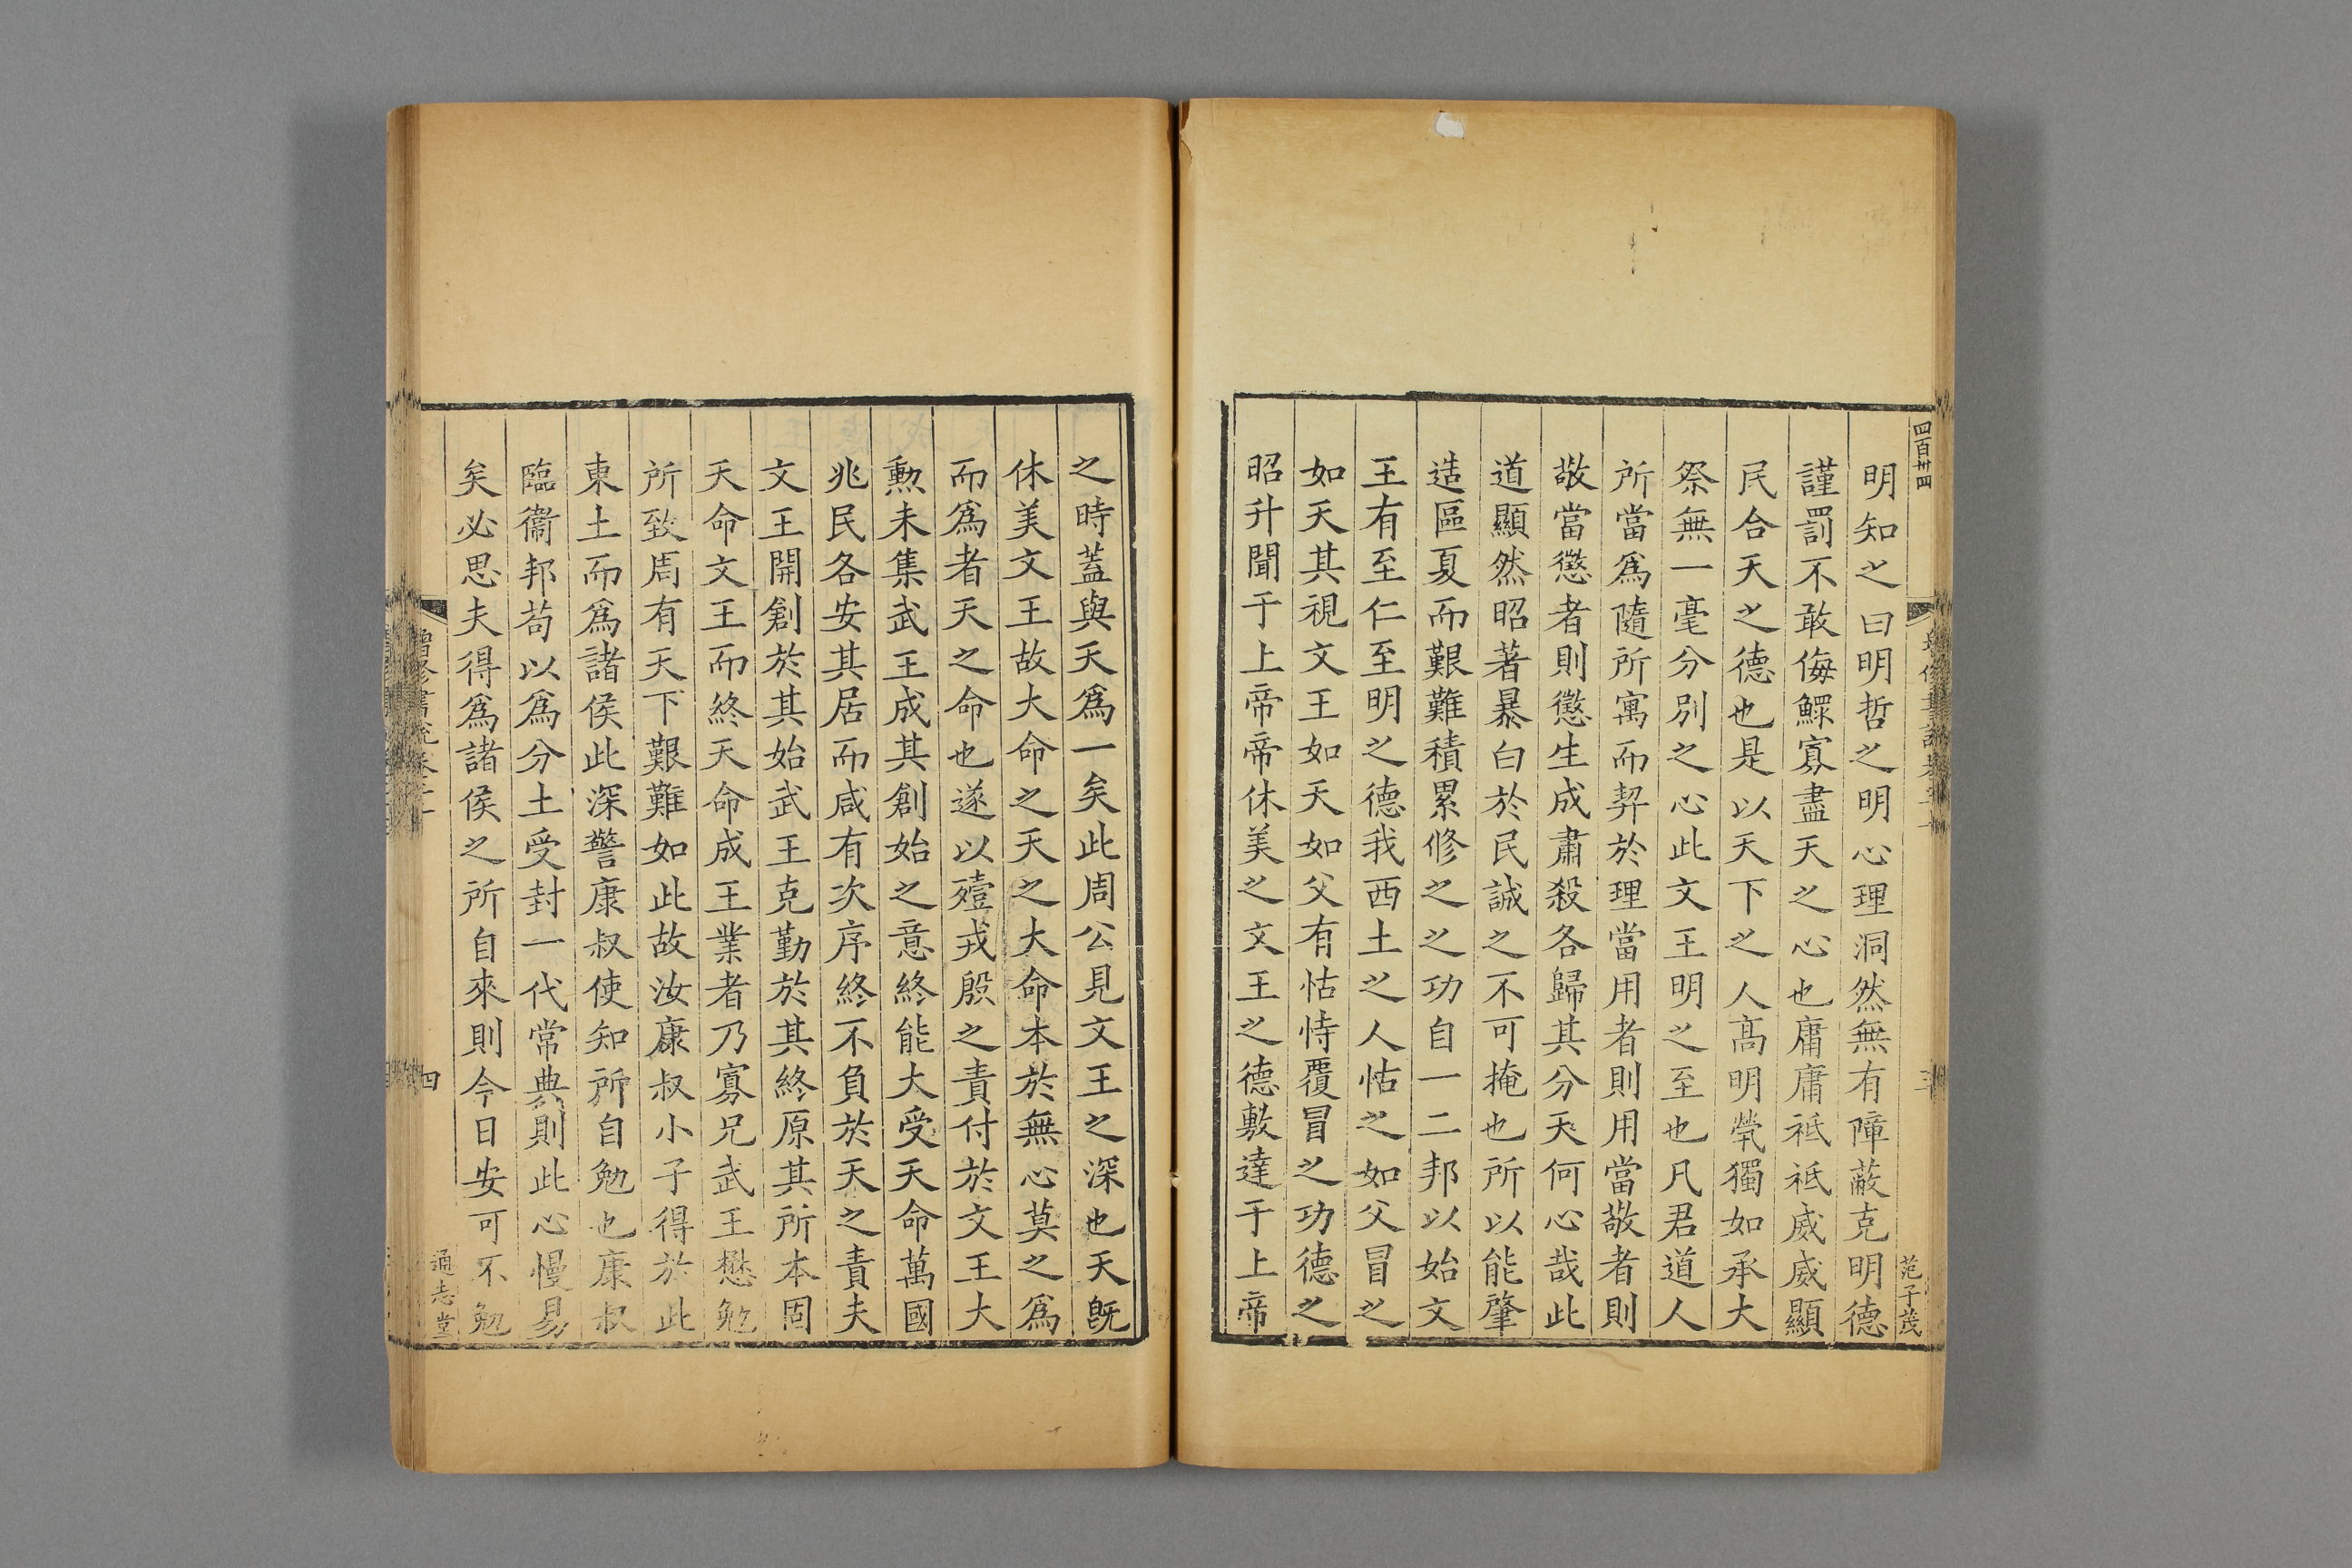 四百卅四
明知之曰明哲之明心理洞然無有障蔽克明德
謹罰不敢侮鰥寡盡天之心也庸庸祗祗威威顯
民合天之德也是以天下之人高明煢獨如承大
祭無一毫分別之心此文王明之至也凡君道人
所當爲隨所寓而契於理當用者則用當敬者則
敬當懲者則懲生成肅殺各歸其分天何心哉此
道顯然昭著暴白於民誠之不可掩也所以能肇
造區夏而艱難積累修之之功自一二邦以始文
王有至仁至明之德我西土之人怙之如父冒之
如天其視文王如天如父有怙恃覆冒之功德之
昭升聞于上帝帝休美之文王之德敷達于上帝
范子茂
之時蓋與天爲一矣此周公見文王之深也天旣
休美文王故大命之天之大命本於無心莫之爲
而爲者天之命也遂以殪戎殷之責付於文王大
勲未集武王成其創始之意終能大受天命萬國
兆民各安其居而咸有次序終不負於天之責夫
文王開創於其始武王克勤於其終原其所本固
天命文王而終天命成王業者乃寡兄武王懋勉
所致周有天下艱難如此故汝康叔小子得於此
東土而爲諸侯此深警康叔使知所自勉也康叔
臨衞邦苟以爲分土受封一代常典則此心慢易
矣必思夫得爲諸侯之所自來則今日安可不勉
四
通志堂